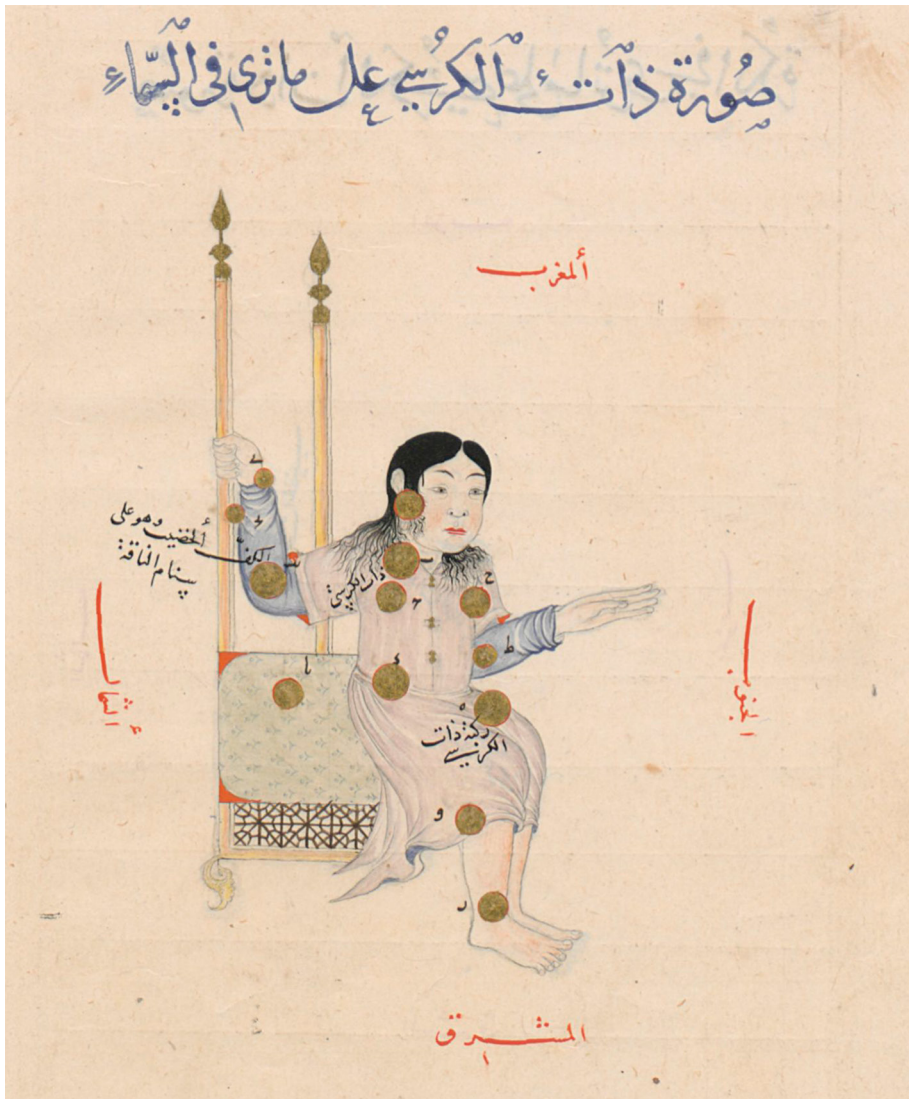 صُورة ذات الكرسي على ما ترى في السَّماءِ
ألمغرب
الكف ألخضيب وهو على
سنام الناقة
ذات الكرسي
ح
ط
ألشمال
الجنوب
يا
ه
ركبة ذات
الكرسي
و
ر
المشرق